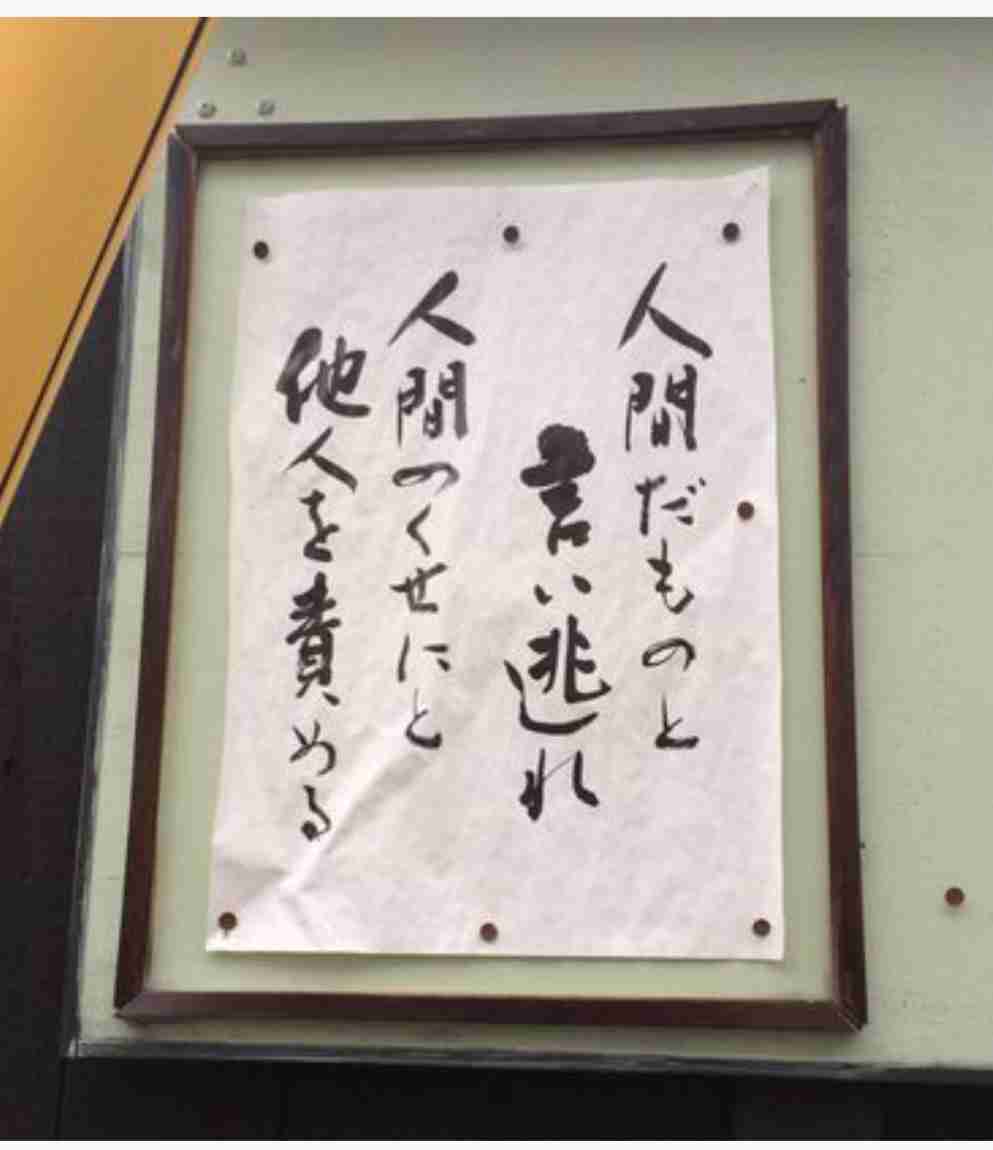 人間だものと
言い逃れ
人間のくせにと
他人を責める